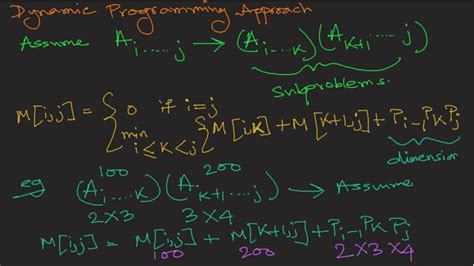 Dynamic Programming Approach
Assume A i.....j → (A i....k)(A k+1.....j)
subproblems.
M[i,j] = { 0 if i=j
min i≤k<j { M[i,k] + M[k+1,j] + P i-1 P k P j
dimension
100 200
eg (A i....k)(A k+1....j) → Assume
2×3 3×4
M[i,j] = M[i,k] + M[k+1,j] + P i-1 P k P j
100 200 2×3×4